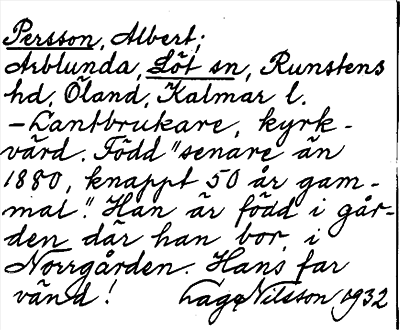 Persson, Albert;
Arblunda, Löt sn, Runstens
hd, Öland, Kalmar l.
– Lantbrukare, kyrk-
värd. Född "senare än
1880, knappt 50 år gam-
mal." Han är född i går-
den där han bor, i
Norrgården. Hans far
vänd! Lage Nilsson 1932